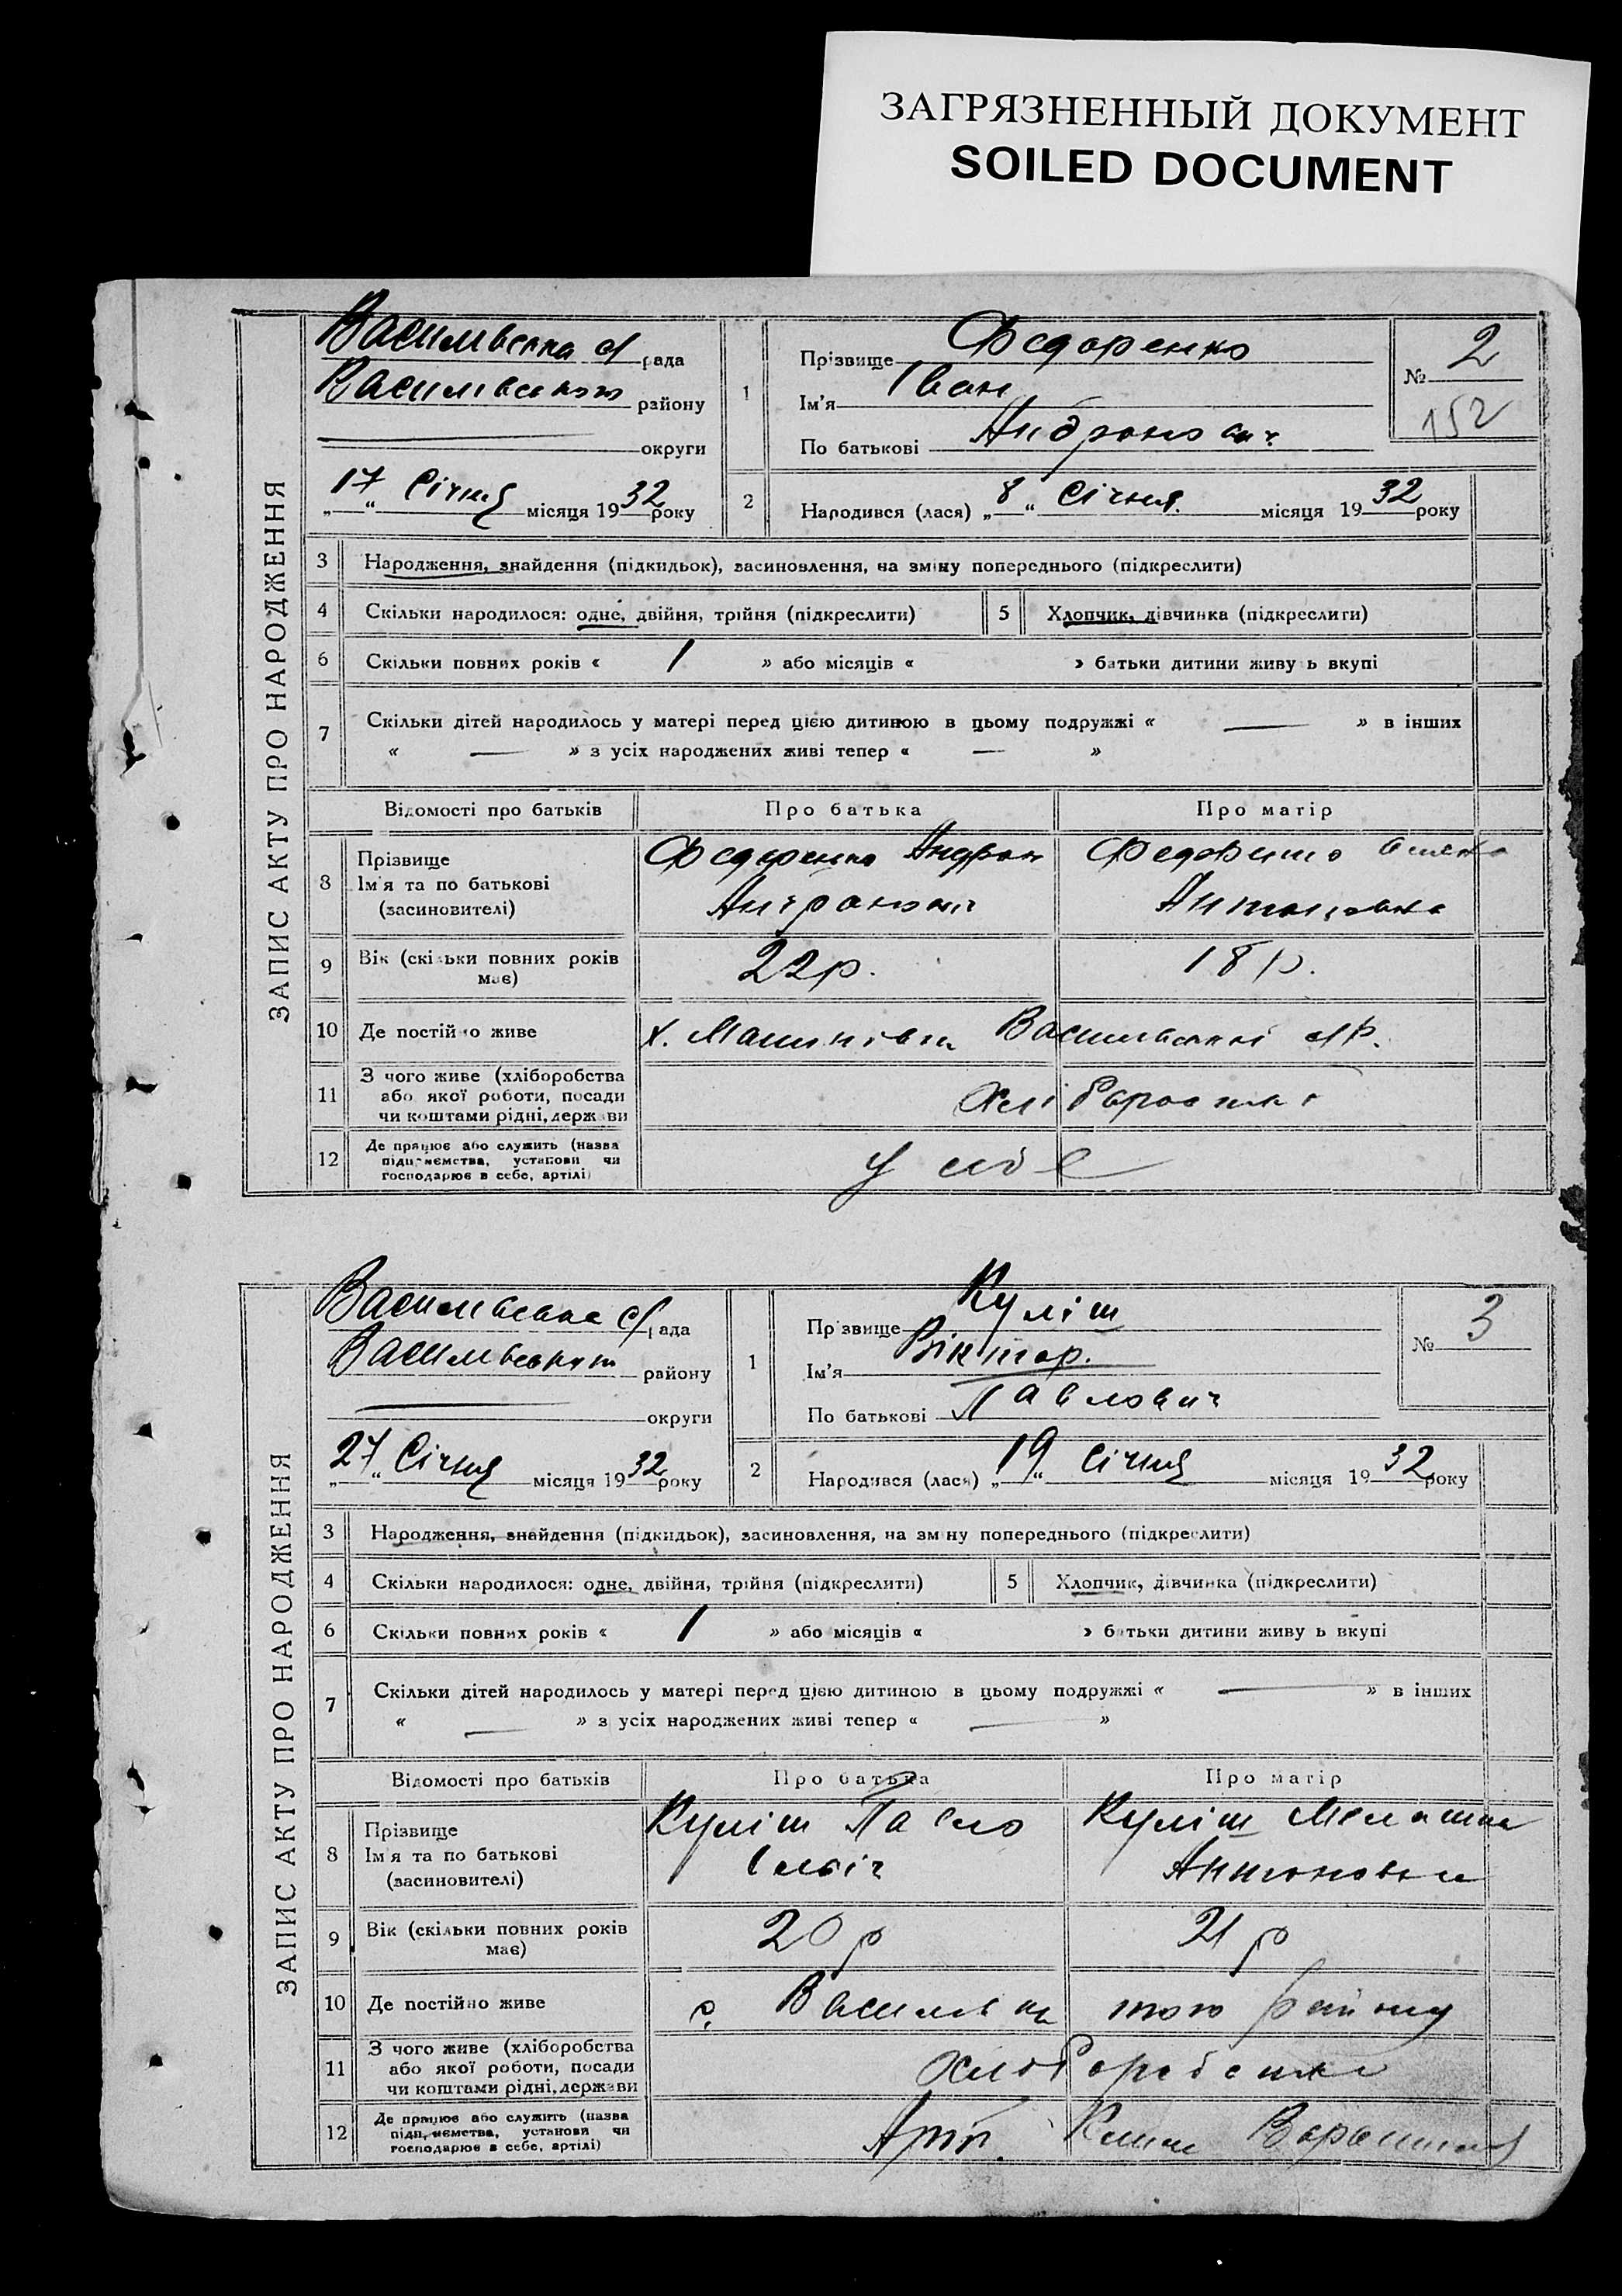 ЗАГРЯЗНЕННЫЙ ДОКУМЕНТ
SOILED DOCUMENT
ЗАПИС АКТУ ПРО НАРОДЖЕННЯ
Васильвська с/рада
Васильвського району
округи
„17“ Січня місяця 1932 року
1
Прізвище Федоренко
Ім'я Іван
По батькові Андронович
№ 2
152
2
Народився (лася) „8“ Січня. місяця 1932 року
3 Народження, знайдення (підкидьок), засиновлення, на зміну попереднього (підкреслити)
4 Скільки народилося: одне, двійня, трійня (підкреслити)
5 Хлопчик, дівчинка (підкреслити)
6 Скільки повних років « 1 » або місяців « » батьки дитини живуть вкупі
7 Скільки дітей народилось у матері перед цією дитиною в цьому подружжі « — » в інших
« — » з усіх народжених живі тепер « — »
Відомості про батьків Про батька Про матір
8 Прізвище
Ім'я та по батькові
(засиновителі)
Федоренко Андрон
Андронович
Федоренко
Антоновна
9 Вік (скільки повних років
має)
22р. 18р.
10 Де постійно живе
х. Васильвської с/р.
11 З чого живе (хліборобства
або якої роботи, посади
чи коштами рідні, держави
12 Де працює або служить (назва
підприємства, установи чи
господарює в себе, артілі)
у себе
ЗАПИС АКТУ ПРО НАРОДЖЕННЯ
Васильвська с/рада
Васильвського району
округи
„27“ Січня місяця 1932 року
1
Прізвище Куліш
Ім'я Віктор.
По батькові Павлович
№ 3
2
Народився (лася) „19“ Січня місяця 1932 року
3 Народження, знайдення (підкидьок), засиновлення, на зміну попереднього (підкреслити)
4 Скільки народилося: одне, двійня, трійня (підкреслити)
5 Хлопчик, дівчинка (підкреслити)
6 Скільки повних років « 1 » або місяців « » батьки дитини живуть вкупі
7 Скільки дітей народилось у матері перед цією дитиною в цьому подружжі « — » в інших
« — » з усіх народжених живі тепер « — »
Відомості про батьків Про батька Про матір
8 Прізвище
Ім'я та по батькові
(засиновителі)
Куліш Павло
Ілліч
Куліш Мелашка
Антоновна
9 Вік (скільки повних років
має)
20р 21р
10 Де постійно живе
с. Васильвка того району
11 З чого живе (хліборобства
або якої роботи, посади
чи коштами рідні, держави
12 Де працює або служить (назва
підприємства, установи чи
господарює в себе, артілі)
Арт.